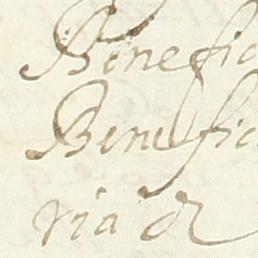 Benefic
Benefic
ria &